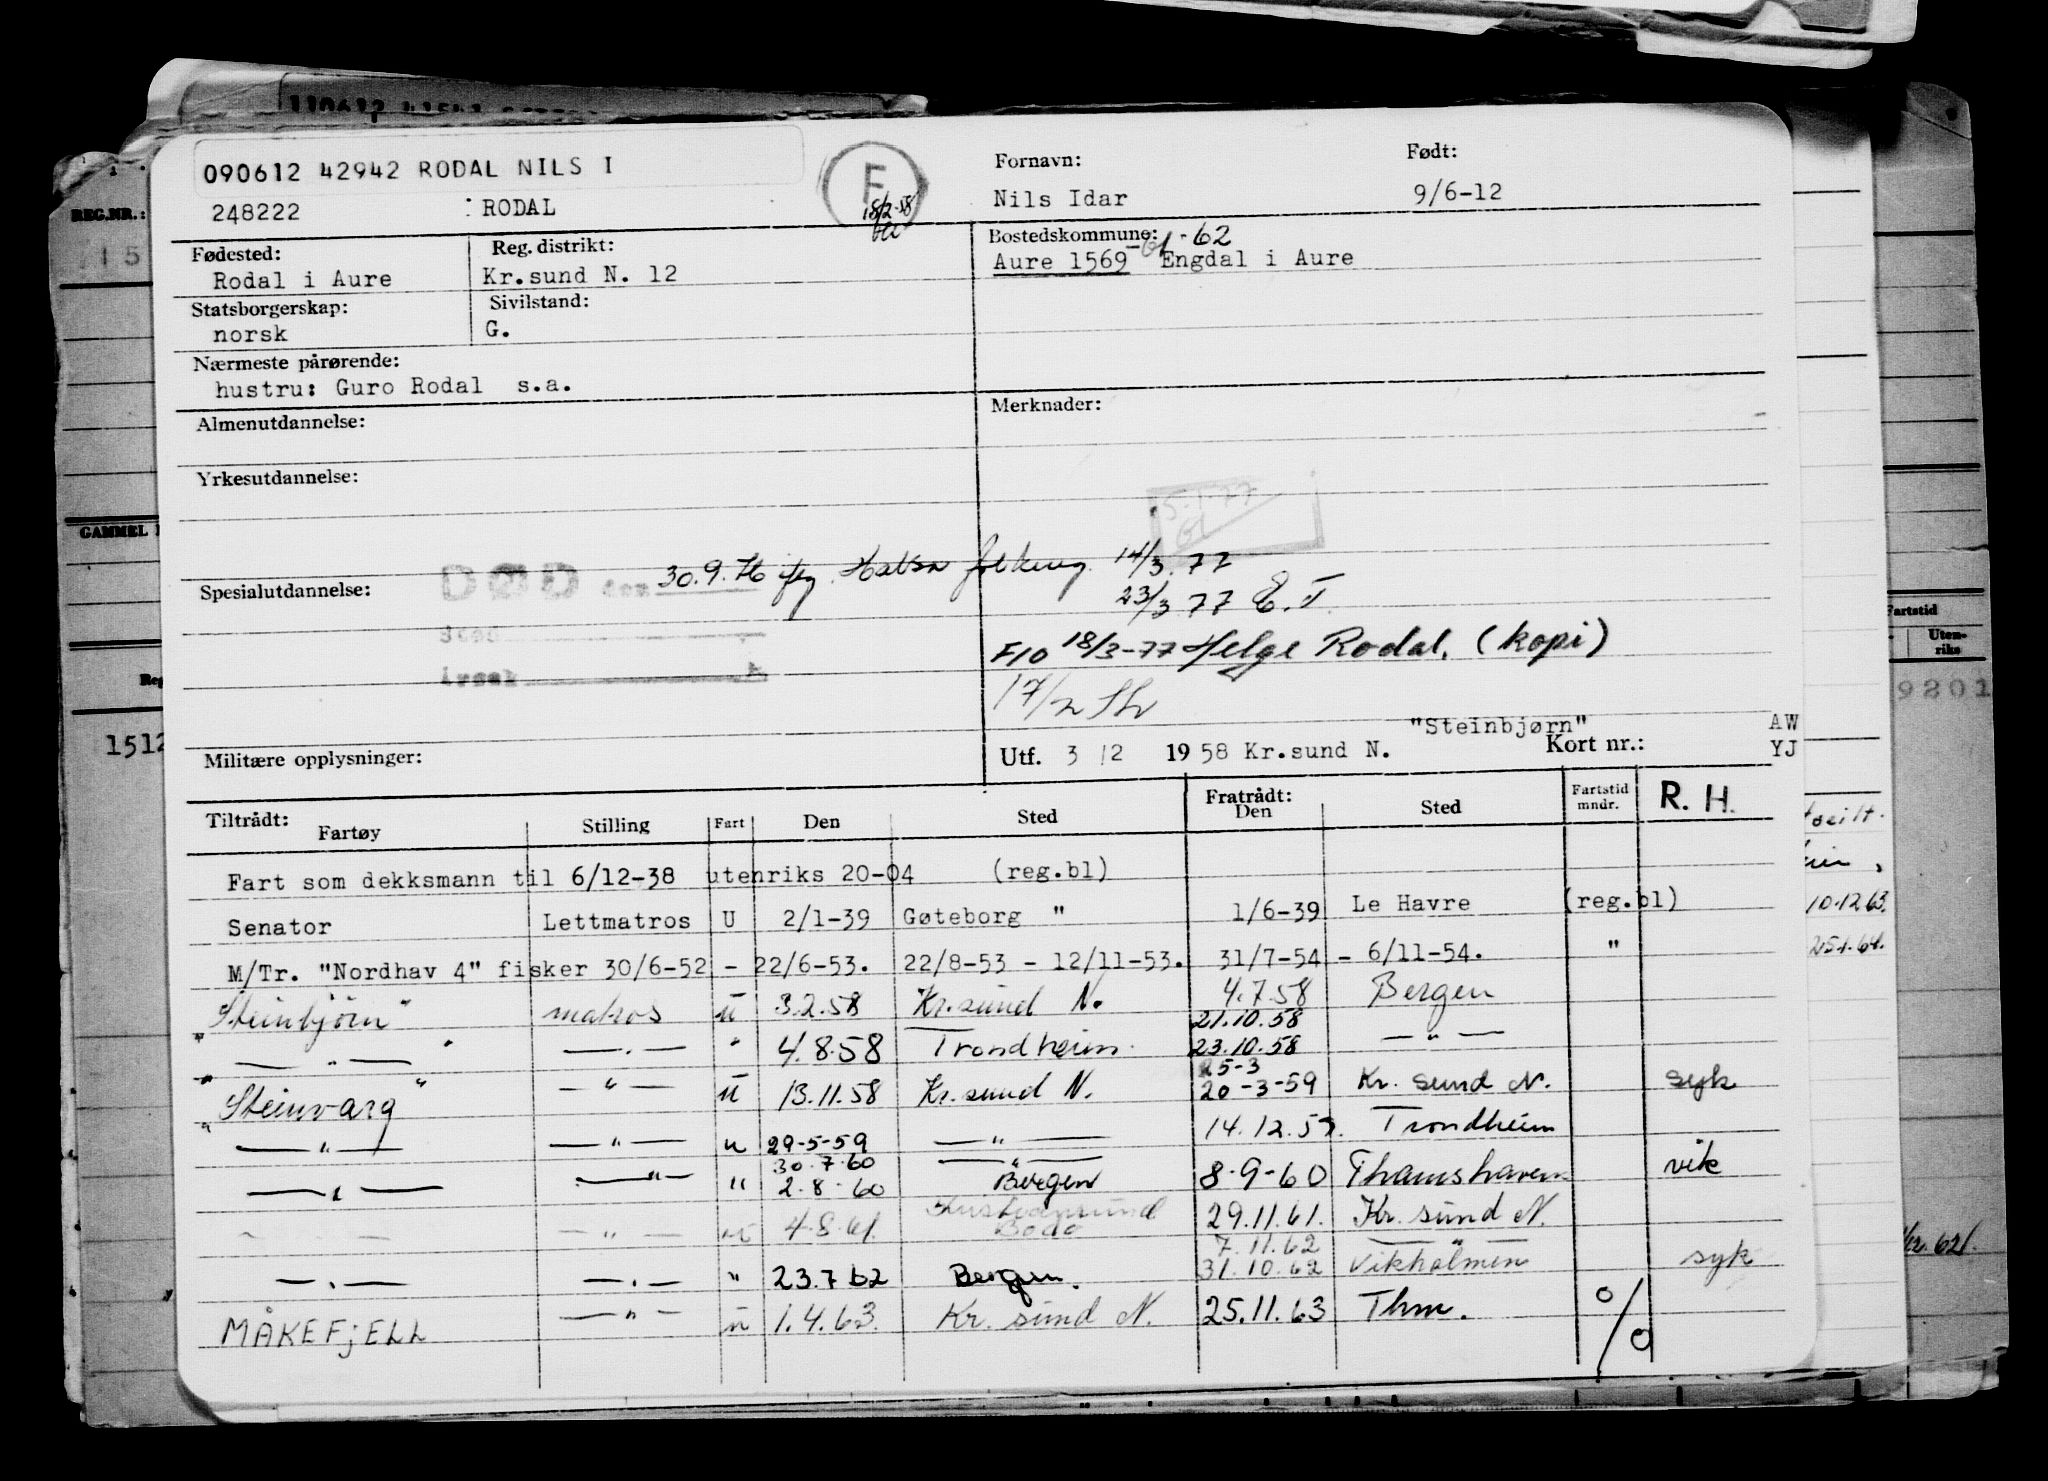 090612 42942 RODAL NILS I
F
Fornavn:
Født:
248222
RODAL
18/2-58
Nils Idar
9/6-12
REG.NR.:
Fødested:
Reg. distrikt:
Bostedskommune:
-61-62
Rodal i Aure
Kr.sund N. 12
Aure 1569 Engdal i Aure
Statsborgerskap:
Sivilstand:
norsk
G.
Nærmeste pårørende:
hustru: Guro Rodal s.a.
Almenutdannelse:
Merknader:
Yrkesutdannelse:
5-1-77
GAMMEL
Spesialutdannelse:
DØD den 30.9.76 flg. Halsa folkereg. 14/3.77
23/3 77 E.T.
Sted
F10 18/3-77 Helge Rodal. (kopi)
årsak
17/2
"Steinbjørn"
AW
Militære opplysninger:
Utf. 3/2 1958 Kr.sund N.
Kort nr.:
YJ
Fartstid
Uten-
riks
9801
1512
Tiltrådt:
Fartøy
Stilling
Fart
Den
Sted
Fratrådt:
Den
Sted
Fartstid
mndr.
R. H.
Fart som dekksmann til 6/12-38 utenriks 20-04 (reg.bl)
Senator Lettmatros U 2/1-39 Gøteborg " 1/6-39 Le Havre (reg.bl)
10.12.63.
M/Tr. "Nordhav 4" fisker 30/6-52 - 22/6-53. 22/8-53 - 12/11-53. 31/7-54 - 6/11-54. "
25.1.64.
"Steinbjörn" matros u 3.2.58 Kr.sund N. 4.7.58 Bergen
21.10.58
" — " — " — " — " 4.8.58 Trondheim. 23.10.58 — " —
25-3
"Steinvarg" — " — u 13.11.58 Kr.sund N. 20-3-59 Kr. sund N. syk
— " — — " — u 29-5-59 — " — 14.12.59. Trondheim
30.7.60 — " —
— " — — " — " 2.8.60 Bergen 8-9-60 Thamshavn vik
Kristiansund
— " — — " — u 4.8.61. Bodø 29.11.61. Kr. sund N.
7.11.62 — " —
— " — — " — " 23.7 62 Bergen. 31.10.62 Vikholmen syk
MÅKEFjELL — " — u 1.4.63. Kr. sund N. 25.11.63 Thm. o/o